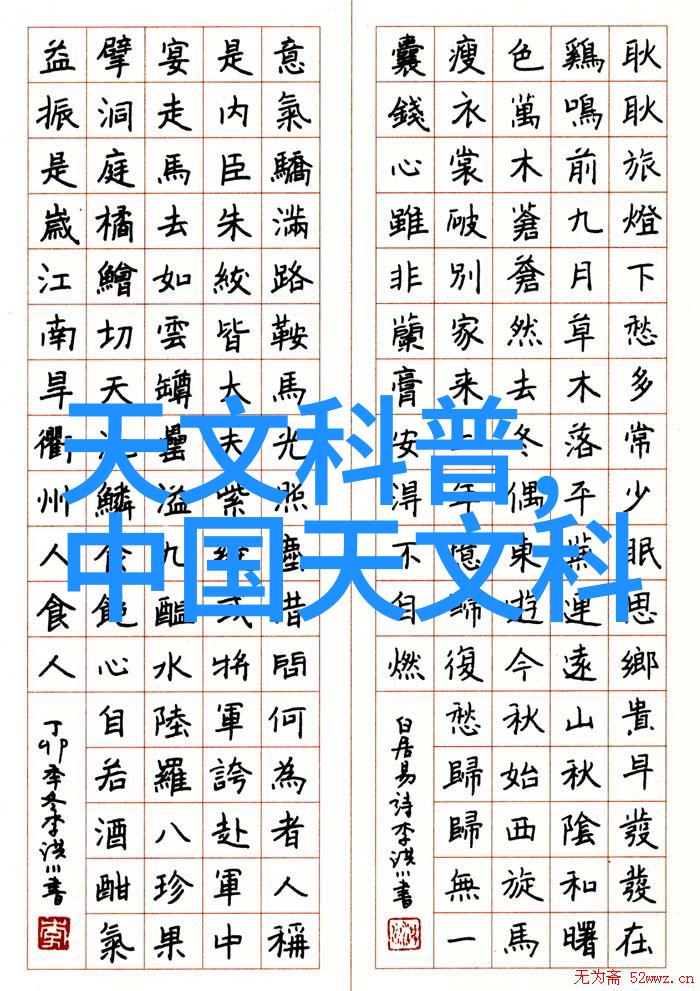 耿耿旅燈下愁多常少眠思鄉貴早發發在
鷄鳴前九月草木落平蕪連遠山秋陰和曙
色萬木蒼蒼然去冬偶東遊今秋始西旋馬
瘦衣裳破別家來二年憶歸復愁歸歸無一
囊錢心雖非蘭膏安得不自燃
白居易詩李洪川書
意氣驕滿路鞍馬光照塵借問何為者人稱
是內臣朱紱皆大夫紫綬或將軍誇赴軍中
宴走馬去如雲罇罍溢九醞水陸羅八珍果
擘洞庭橘鱠切天池鱗食飽心自若酒酣氣
益振是歲江南旱衢州人食人
丁卯季冬李洪川書
天文科普,
中国天文科
无为斋 52wwz.cn